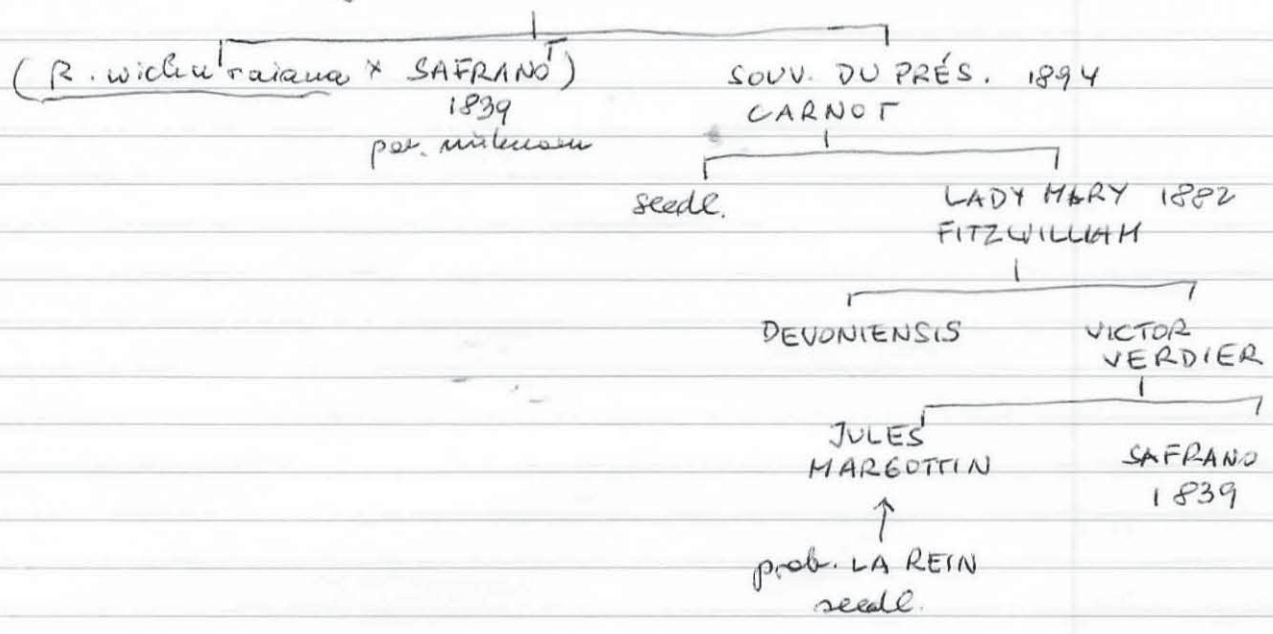 (R. wichuraiana × SAFRANO) SOUV. DU PRÉS. 1894
1839 CARNOT
par. unknown
seedl. LADY MARY 1882
FITZWILLIAM
DEVONIENSIS VICTOR
VERDIER
JULES
MARGOTTIN SAFRANO
1839
prob. LA REIN
seedl.